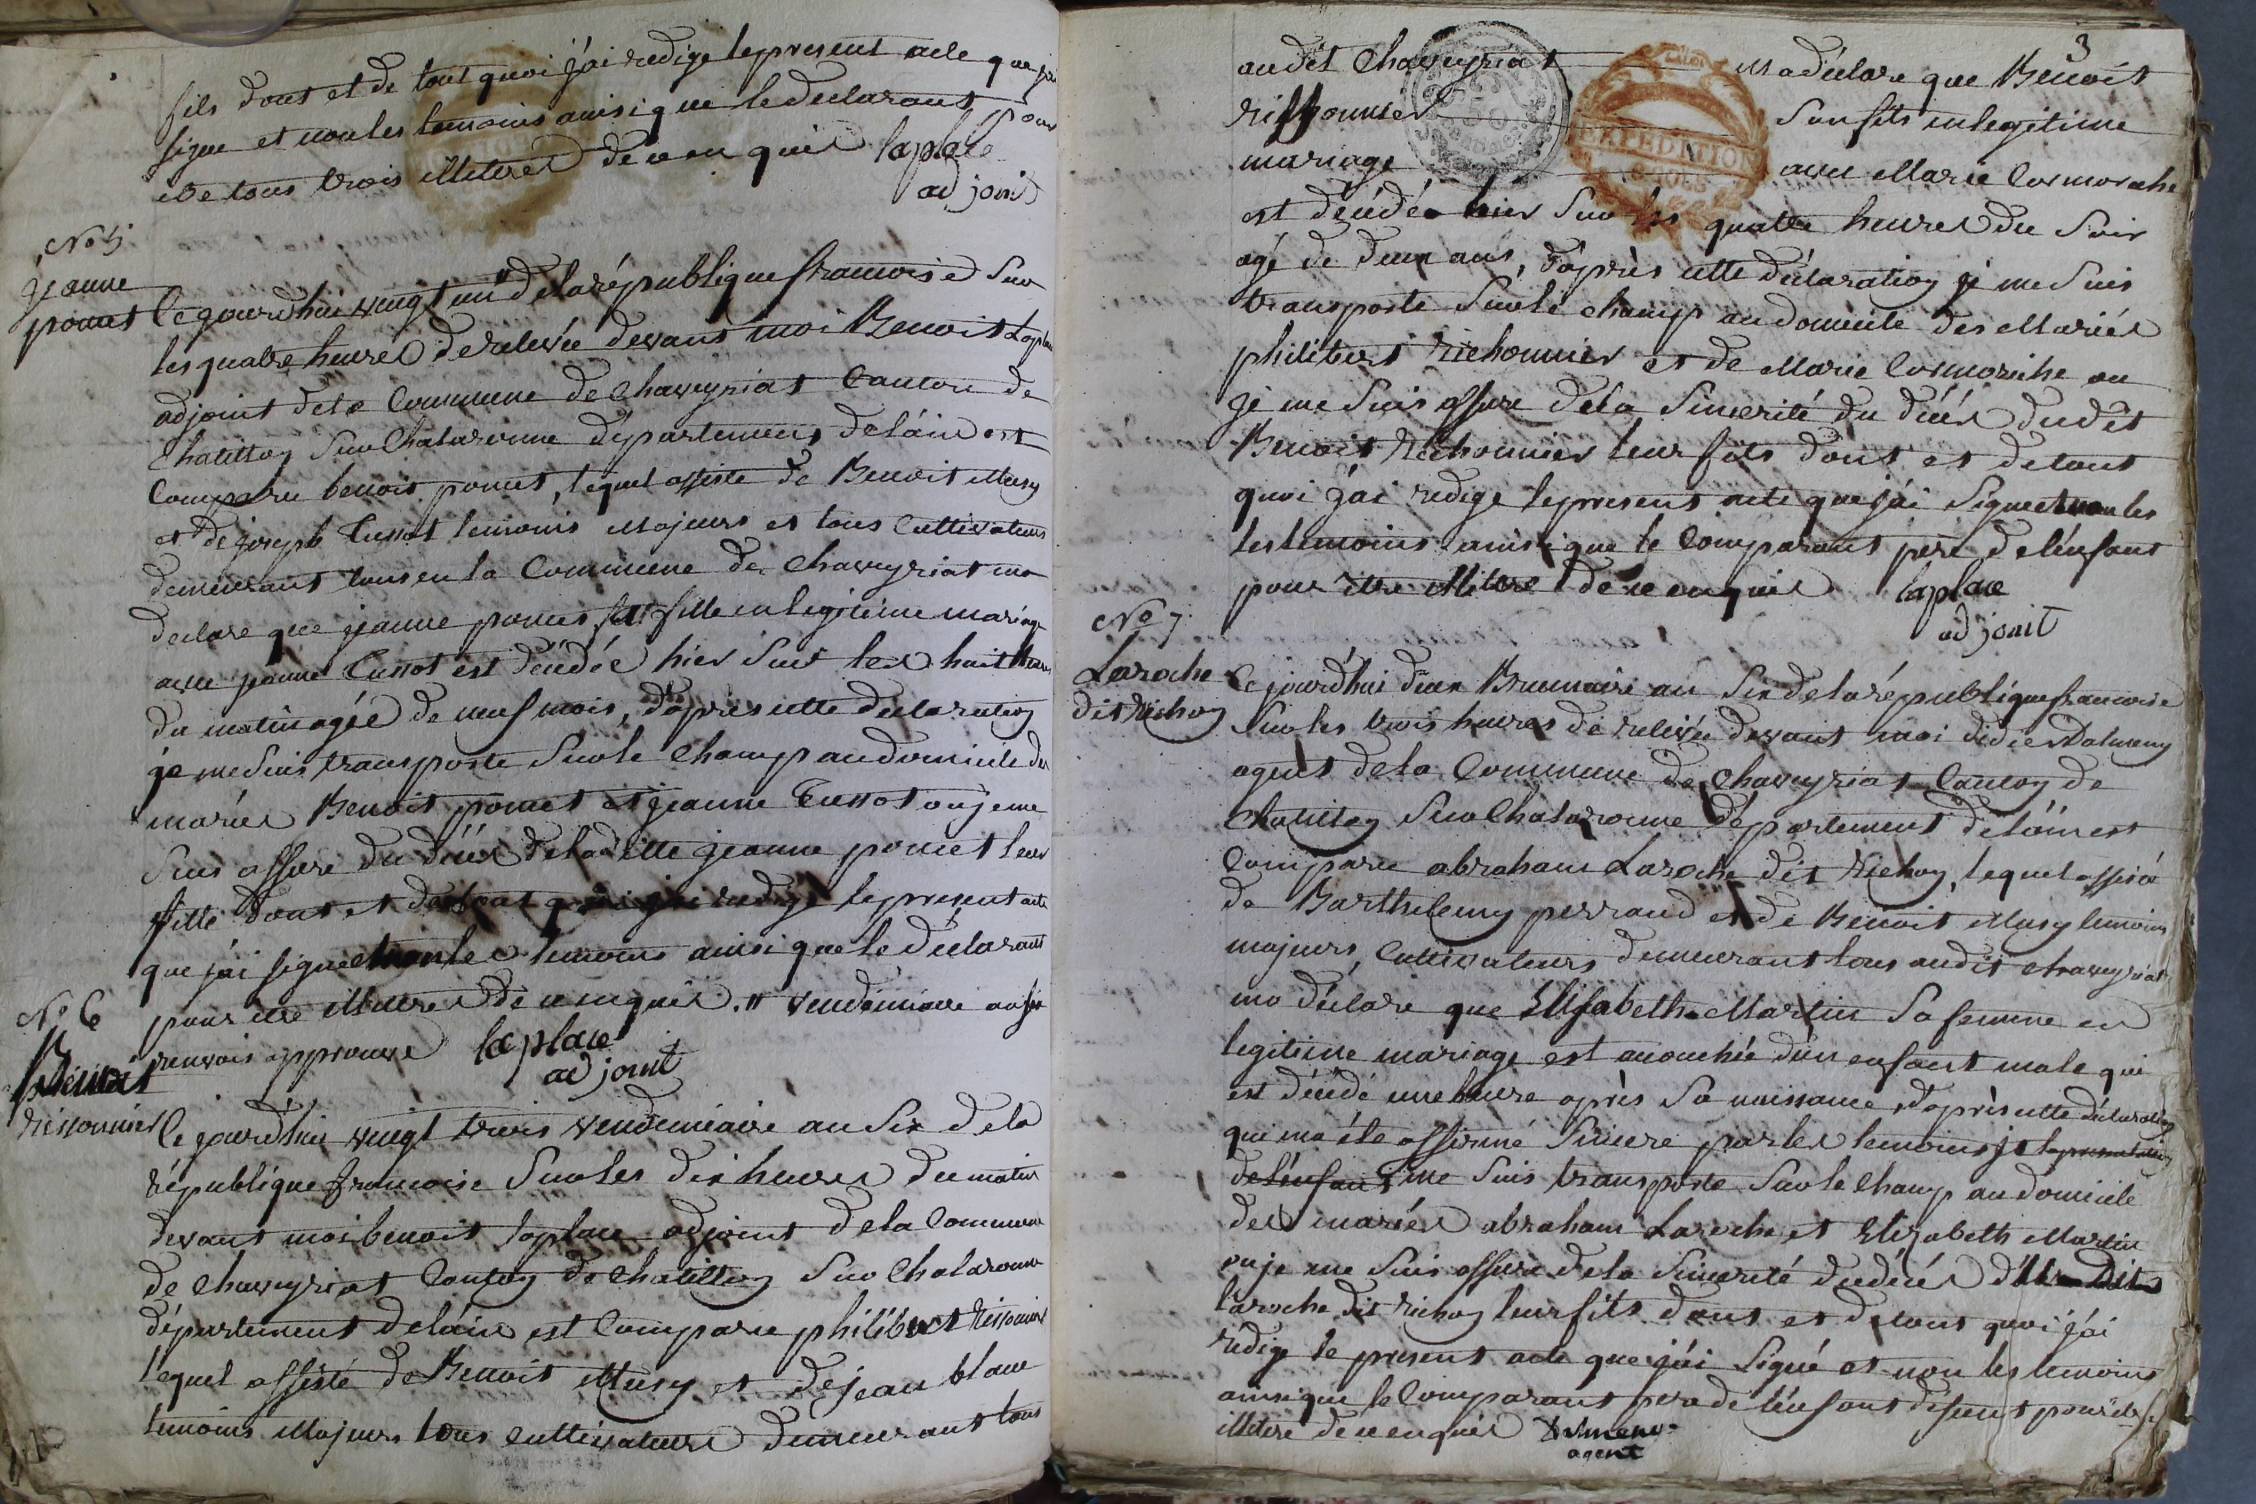 fils dont et de tout quoi j'ai redige le present acte que j'ai
signe et non les temoins ainsi que le declarant pour
etre tous trois illiteres de ce enquis laplace
adjoint
No 5
jeanne
poncet
Ce gourdhui vingt un " de la république francoise Sur
les quatre heures de relevée devant moi Benoit Laplace
adjoint de la Commune de Chaveyriat Canton de
Chatillon Sur Chalaronne département de láin est
Comparu benoit poncet, lequel assisté de Benoit Musy
et de joseph temoins Majeurs et tous Cultivateurs
demeurant tous en la Commune de Chaveyriat ma
declare que jeanne poncet sa fille en legitime mariage
avec jeanne est décédée hier Sur les huit heures
du matin agée de neuf mois, d'après cette declaration
je me Suis transporte Sur le Champ au domicile des
mariés Benoit poncet et jeanne ou je me
Suis assure du décés de ladite jeanne poncet leur
fille dont et de tout quoi j'ai redige le present acte
que j'ai signe et non les temoins ainsi que le déclarant
pour etre illiteres de ce enquis. " vendémiaire an six
renvois approuve laplace
adjoint
No 6
Benoit
rissonnier
Ce jourdhui vingt trois vendemiaire an Six de la
république francoise Sur les dix heures du matin
devant moi benoit laplace adjoint de la Commune
de Chaveyriat Canton de Chatillon Sur Chalaronne
département de láin est Comparu philibert rissonnier
lequel assisté de Benoit Musy et de jean blanc
temoins Majeurs tous cultivateurs demeurant tous
3
audit Chaveyriat ma déclare que Benoit
richonnier Son fils en legitime
mariage avec Marie Cormoreche
est décédé hier Sur les quatre heures du Soir
agé de deux ans, d'après cette déclaration je me Suis
transporte Sur le champ au domicile des Mariés
philibert richonnier et de Marie Cormoreche ou
je me Suis assure de la Sincerité du décés dudit
Benoit richonnier leur fils dont et de tout
quoi j'ai redige le present acte que j'ai Signe et non les
les temoins ainsi que le Comparant pere de l'enfant
pour etre illitere de ce enquis laplace
adjoint
EXPEDITION
No 7
Laroche
dit richon
Ce jourd'hui deux Brumaire an Six de la république francoise
Sur les trois heures de relevée devant moi Dalmeny
agent de la Commune de Chaveyriat Canton de
Chatillon Sur Chalaronne département de láin est
Comparu abraham Laroche dit richon, lequel assisté
de Barthelemy perraud et de Benoit Musy temoins
majeurs, Cultivateurs demeurant tous audit Chaveyriat
ma déclare que Elisabeth Martin Sa femme en
legitime mariage est accouchée d'un enfant male qui
est décédé une heure après Sa naissance d'après cette déclaration
qui ma été affirmé Sincere par les temoins je la presentation
de l'enfant me Suis transporte Sur le Champ au domicile
des mariés abraham Laroche et Elizabeth Martin
ou je me Suis assure de la Sincerité du décés
laroche dit richon leur fils dont et de tout quoi j'ai
rédige le present acte que j'ai Signé et non les temoins
ainsi que le Comparant pere de l'enfant pour etre
illitere de ce enquis
agent